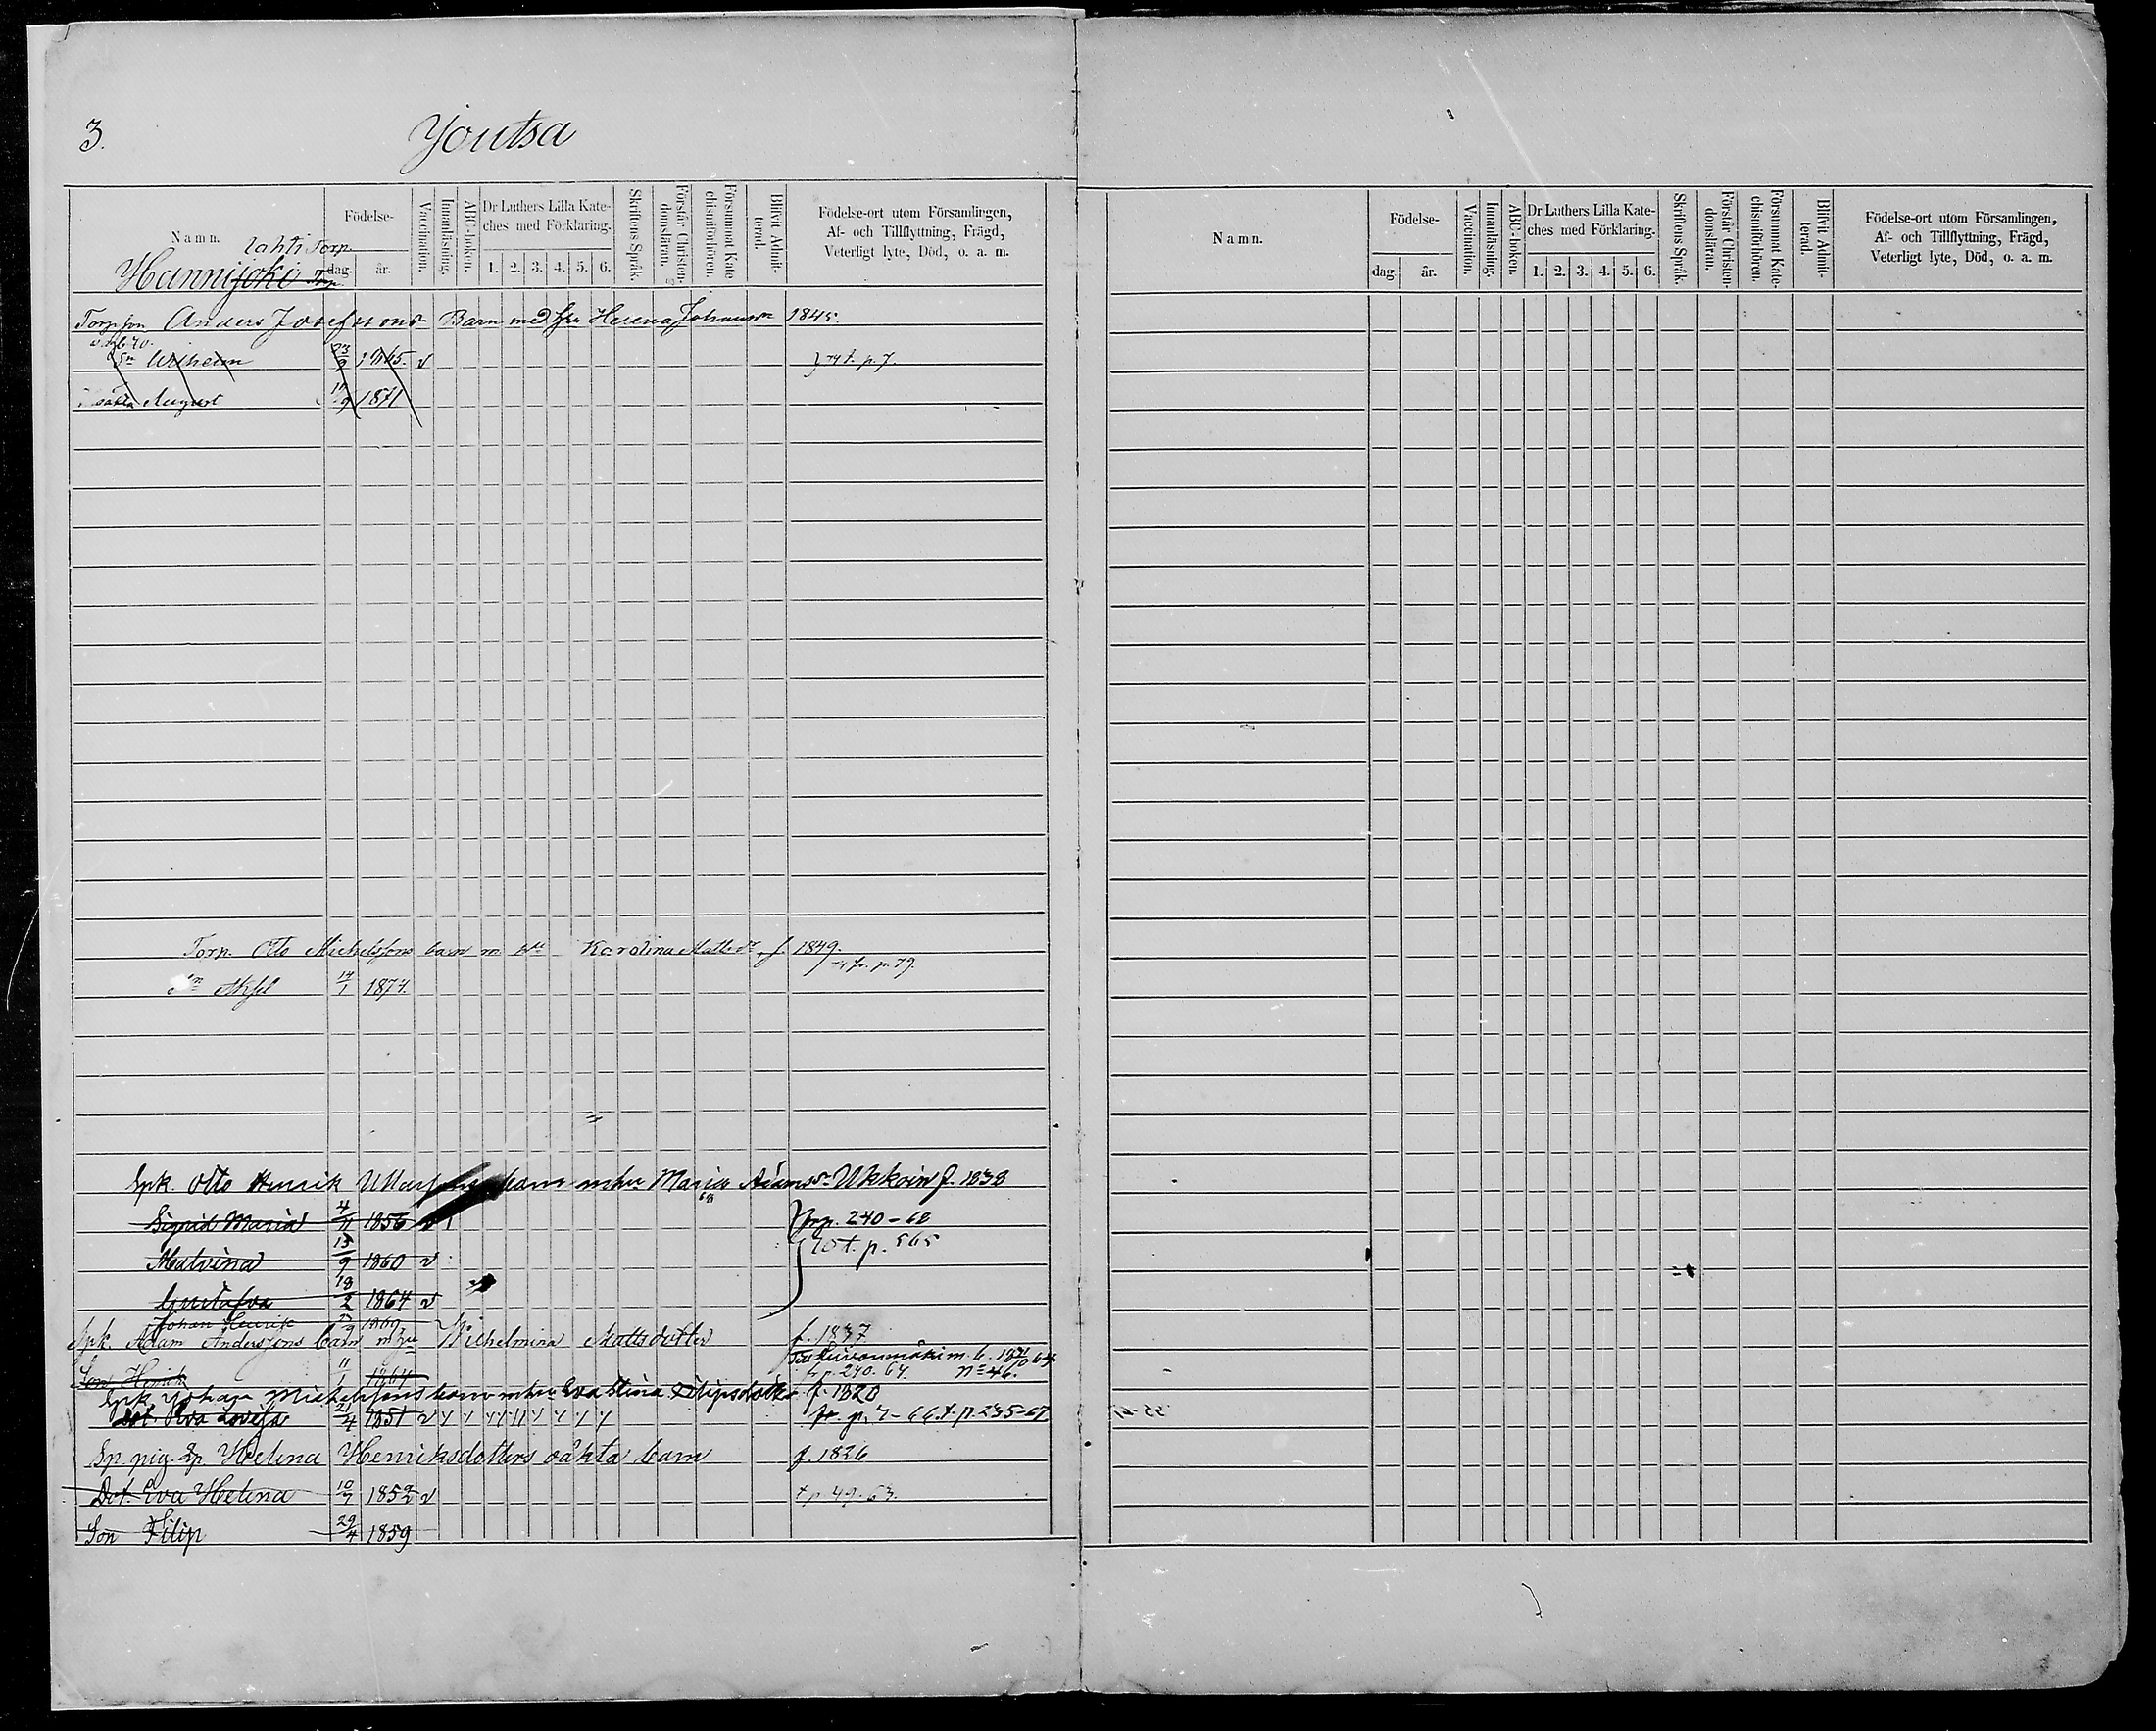 3.
Joutsa
Namn. Födelse- dag. år. Vaccination. Innanläsning. ABC-boken. Dr Luthers Lilla Kate-ches med Förklaring. 1. 2. 3. 4. 5. 6. Skriftens Språk. Förstår Christen-domsläran. Försummat Kate-chismiförhören. Blifvit Admit-terad. Födelse-ort utom Församlingen, Af- och Tillflyttning, Frägd, Veterligt lyte, Död, o. a. m.
Lahti Torp.
Hannijoki Torp.
Anders Josefssons Barn med hu Helena Johansdr 1845.
Sn Wilhelm 23/9 1865. v 74 t. p. 7.
August 9 1871
Torp. Otto Michelssons barn m. hu Karolina Mattsdr f. 1849.
fr. p. 79.
Sn Axel 14/1 1874.
Spk. Otto Henrik barn m hu Maria Adamsdr Ukkoin f. 1838
Sigrid Maria 4/11 1856 v fr p. 240-68
Malvina 13/9 1860 v 70 t. p. 565
Gustafva 18/2 1864 v
Johan Henrik 9 1869
Spk. Adam Anderssons barn m hu Wilhelmina Mattsdotter f. 1837
Till Leivonmäki m. b. 64
Son Henrik 11/1 1864 fr p. 240. 67. No 46.
Spk Johan Michelssons barn m hu Eva Stina Filipsdotter f. 1820
Dot. Eva Lovisa 21/4 1851 v fr. p. 7-66. t. p. 235-67
Sp. pig. Helena Henriksdotters oäkta barn f. 1826
Dot. Eva Helena 10/7 1852 v t p 49-63.
Son Filip 29/4 1859
Namn. Födelse- dag. år. Vaccination. Innanläsning. ABC-boken. Dr Luthers Lilla Kate-ches med Förklaring. 1. 2. 3. 4. 5. 6. Skriftens Språk. Förstår Christen-domsläran. Försummat Kate-chismiförhören. Blifvit Admit-terad. Födelse-ort utom Församlingen, Af- och Tillflyttning, Frägd, Veterligt lyte, Död, o. a. m.